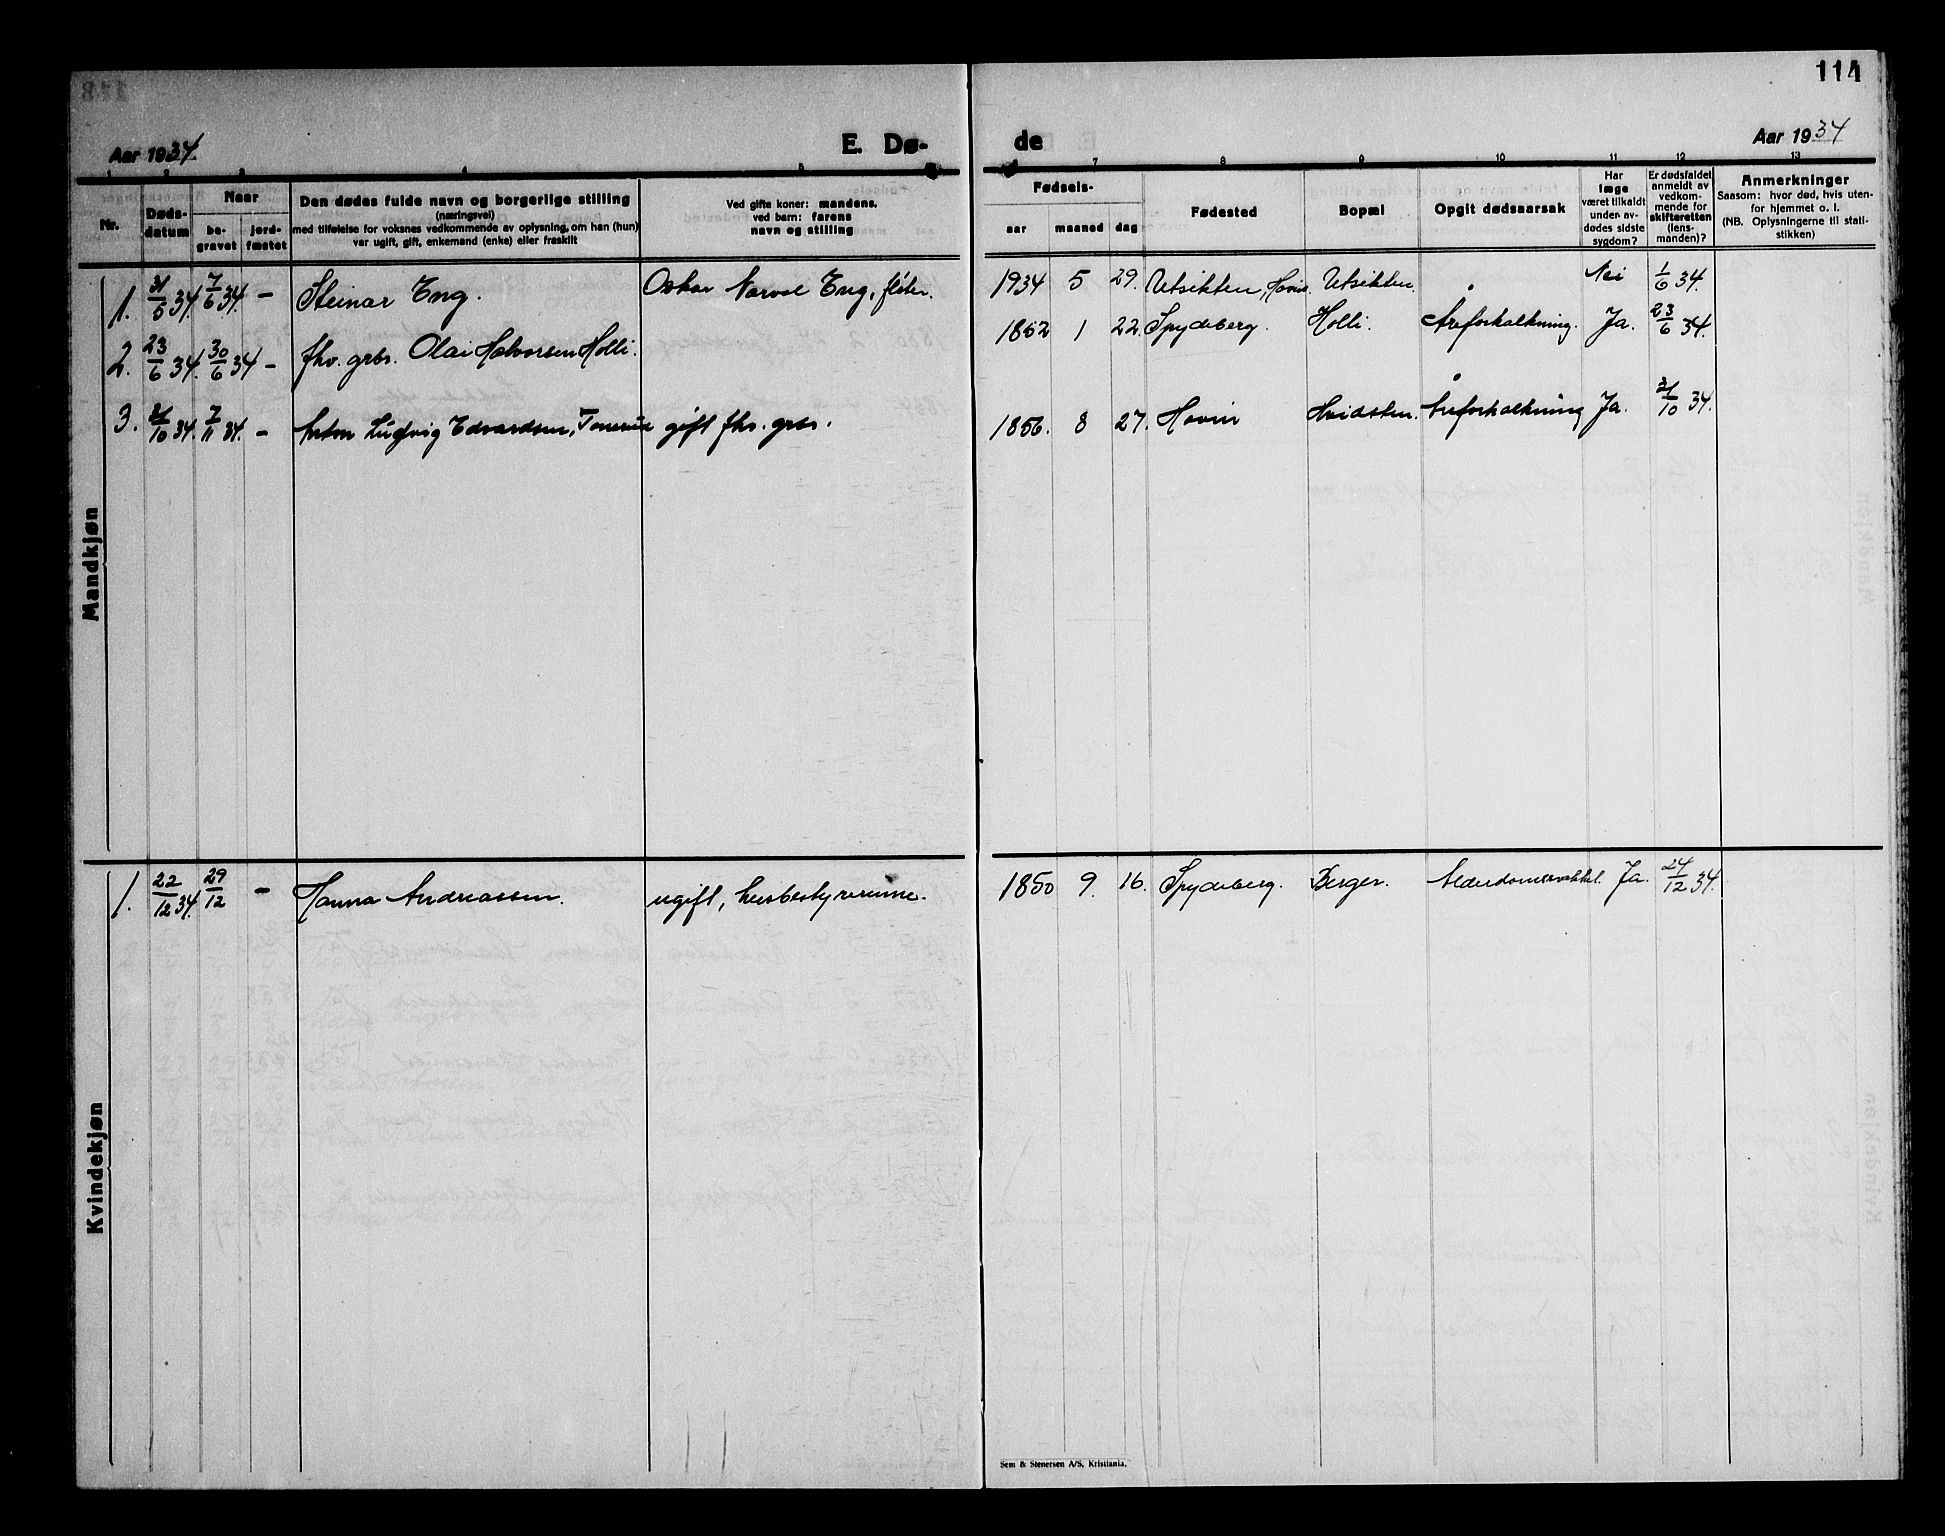 114
Aar 1934.
E. Dø-
de
Aar 1934
1 2 3 4 5
6 7 8 9 10 11 12 13
Nr.
Døds-
datum
Naar
be-
gravet
jord-
fæstet
Den dødes fulde navn og borgerlige stilling
(næringsvei)
med tilføielse for voksnes vedkommende av oplysning, om han (hun)
var ugift, gift, enkemand (enke) eller fraskilt
Ved gifte koner: mandens,
ved barn: farens
navn og stilling
Fødsels-
aar maaned dag
Fødested
Bopæl
Opgit dødsaarsak
Har
læge
været tilkaldt
under av-
dødes sidste
sygdom?
Er dødsfaldet
anmeldt av
vedkom-
mende for
skifteretten
(lens-
manden)?
Anmerkninger
Saasom: hvor død, hvis uten-
for hjemmet o. l.
(NB. Oplysningerne til stati-
stikken)
Mandkjøn
1. 31/5 34. 7/6 34. – Steinar Eng. Oskar Narvel Eng, fløter. 1934 5 29. Utsikten, Hovin. Utsikten. Nei 1/6 34.
2. 23/6 34. 30/6 34 – fhv. grbr. Olai Halvorsen Holli. 1862 1 22. Spydeberg. Holli. Åreforkalkning. Ja. 23/6 34.
3. 31/10 34. 7/11 34. – Anton Ludvig Edvardsen, Tonerud gift fhv. grbr. 1856. 8 27. Hovin Hvidsten. Åreforkalkning Ja. 31/10 34.
Kvindekjøn
1. 22/12 34. 29/12 – Hanna Andreassen. ugift, husbestyrerinne. 1850 9. 16. Spydeberg. Berger. Alderdomssvakkel. Ja. 24/12 34.
Sem & Stenersen A/S, Kristiania.